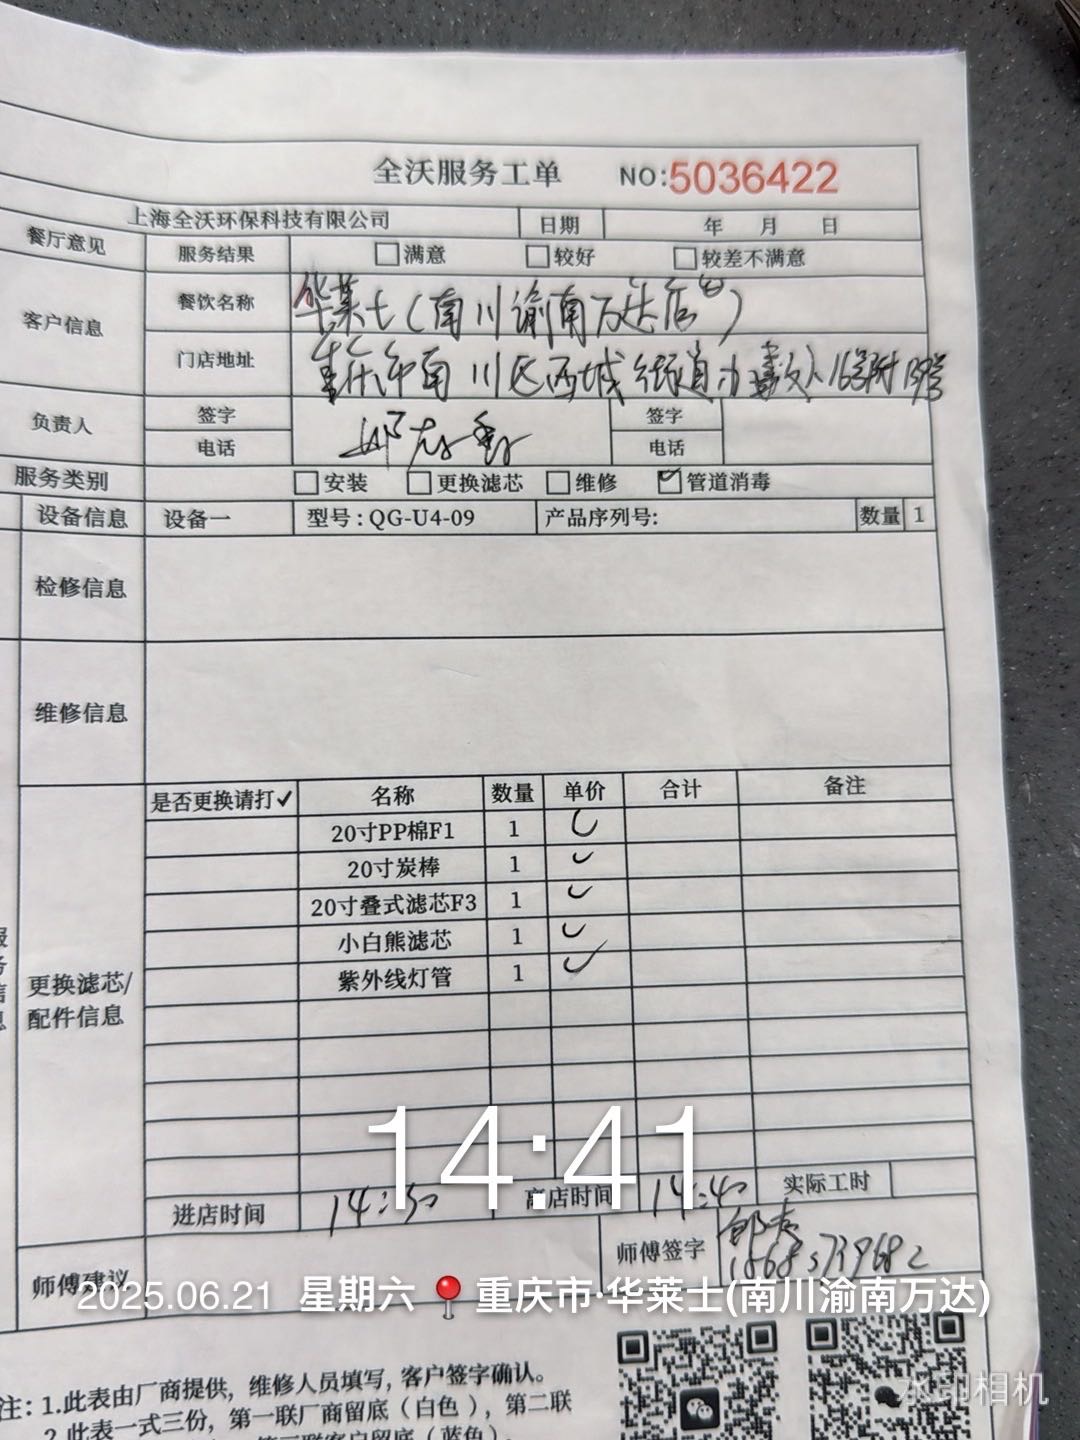 全沃服务工单 NO:5036422
上海全沃环保科技有限公司 日期 年 月 日
餐厅意见 服务结果 满意 较好 较差不满意
客户信息 餐饮名称 华莱士(南川渝南万达店)
门店地址 重庆市南川区西城街道办 16号附
负责人 签字 签字
电话 电话
服务类别 安装 更换滤芯 维修 ✓管道消毒
设备信息 设备一 型号:QG-U4-09 产品序列号: 数量 1
检修信息
维修信息
是否更换请打✓ 名称 数量 单价 合计 备注
20寸PP棉F1 1 ✓
20寸炭棒 1 ✓
20寸叠式滤芯F3 1 ✓
小白熊滤芯 1 ✓
紫外线灯管 1 ✓
更换滤芯/
配件信息
14:41
进店时间 离店时间 14:40 实际工时
师傅建议 师傅签字
2025.06.21 星期六 重庆市·华莱士(南川渝南万达)
注:1.此表由厂商提供,维修人员填写,客户签字确认。
2.此表一式三份,第一联厂商留底(白色),第二联
水印相机